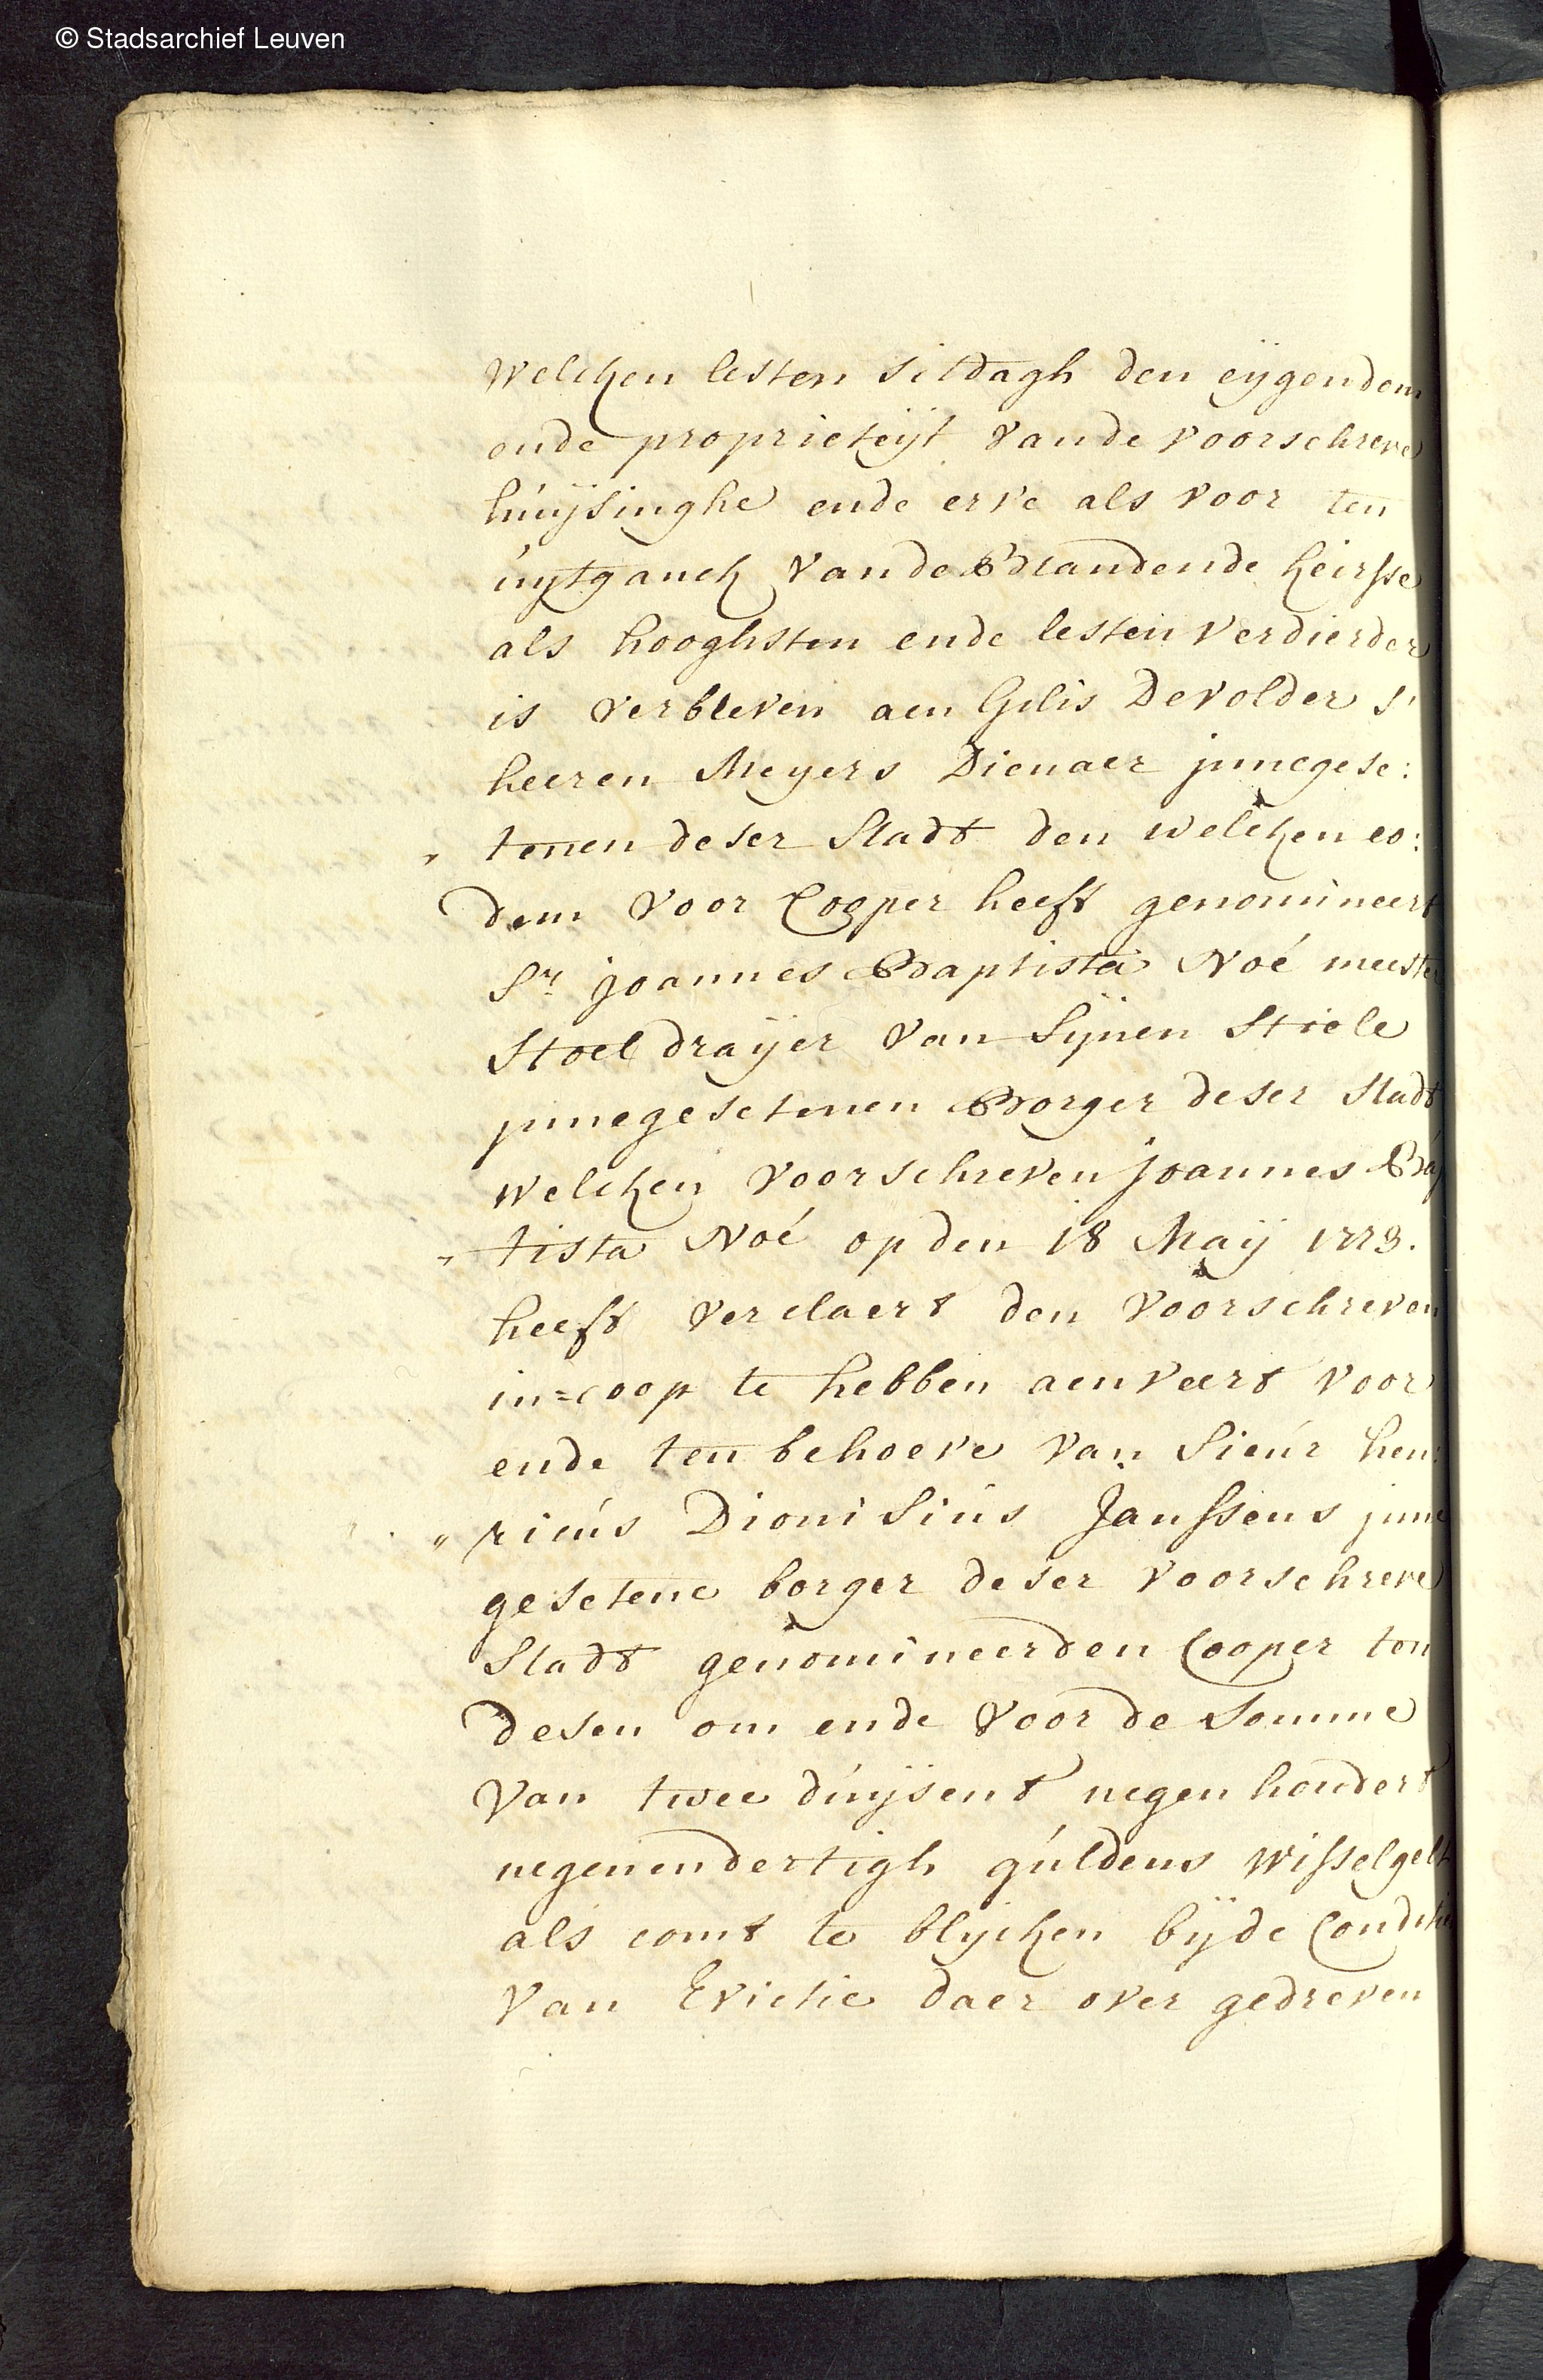 © Stadsarchief Leuven
welcken lesten sitdagh den eijgendom
ende proprieteijt vande voorschreve
huijsinghe ende erve als voor ten
uijtganck vande Brandende keirsse
als hooghsten ende lesten verdierder
is verbleven aen Gilis Devolder s'
heeren Meyers Dienaer innegese:
" tenen deser Stadt den welcken eo:
dem voor Cooper heeft genomineert
Sr. joannes Baptista Noé meester
Stoeldraijer van Sijnen Stiele
innegesetenen Borger deser Stadt
welcken voorschreven joannes Bap
" tista Noé op den 18 Maij 1773.
heeft verclaert den voorschreven
in=coop te hebben aenveert voor
ende ten behoeve van Sieur hen:
" ricus Dionisius Janssens inne
gesetene borger deser voorschreve
Stadt genomineerden Cooper ten
desen om ende voor de Somme
van twee duijsent negen hondert
negenendertigh guldens wisselgelt
als comt te blijcken bijde Conditie
van Evictie daer over gedreven